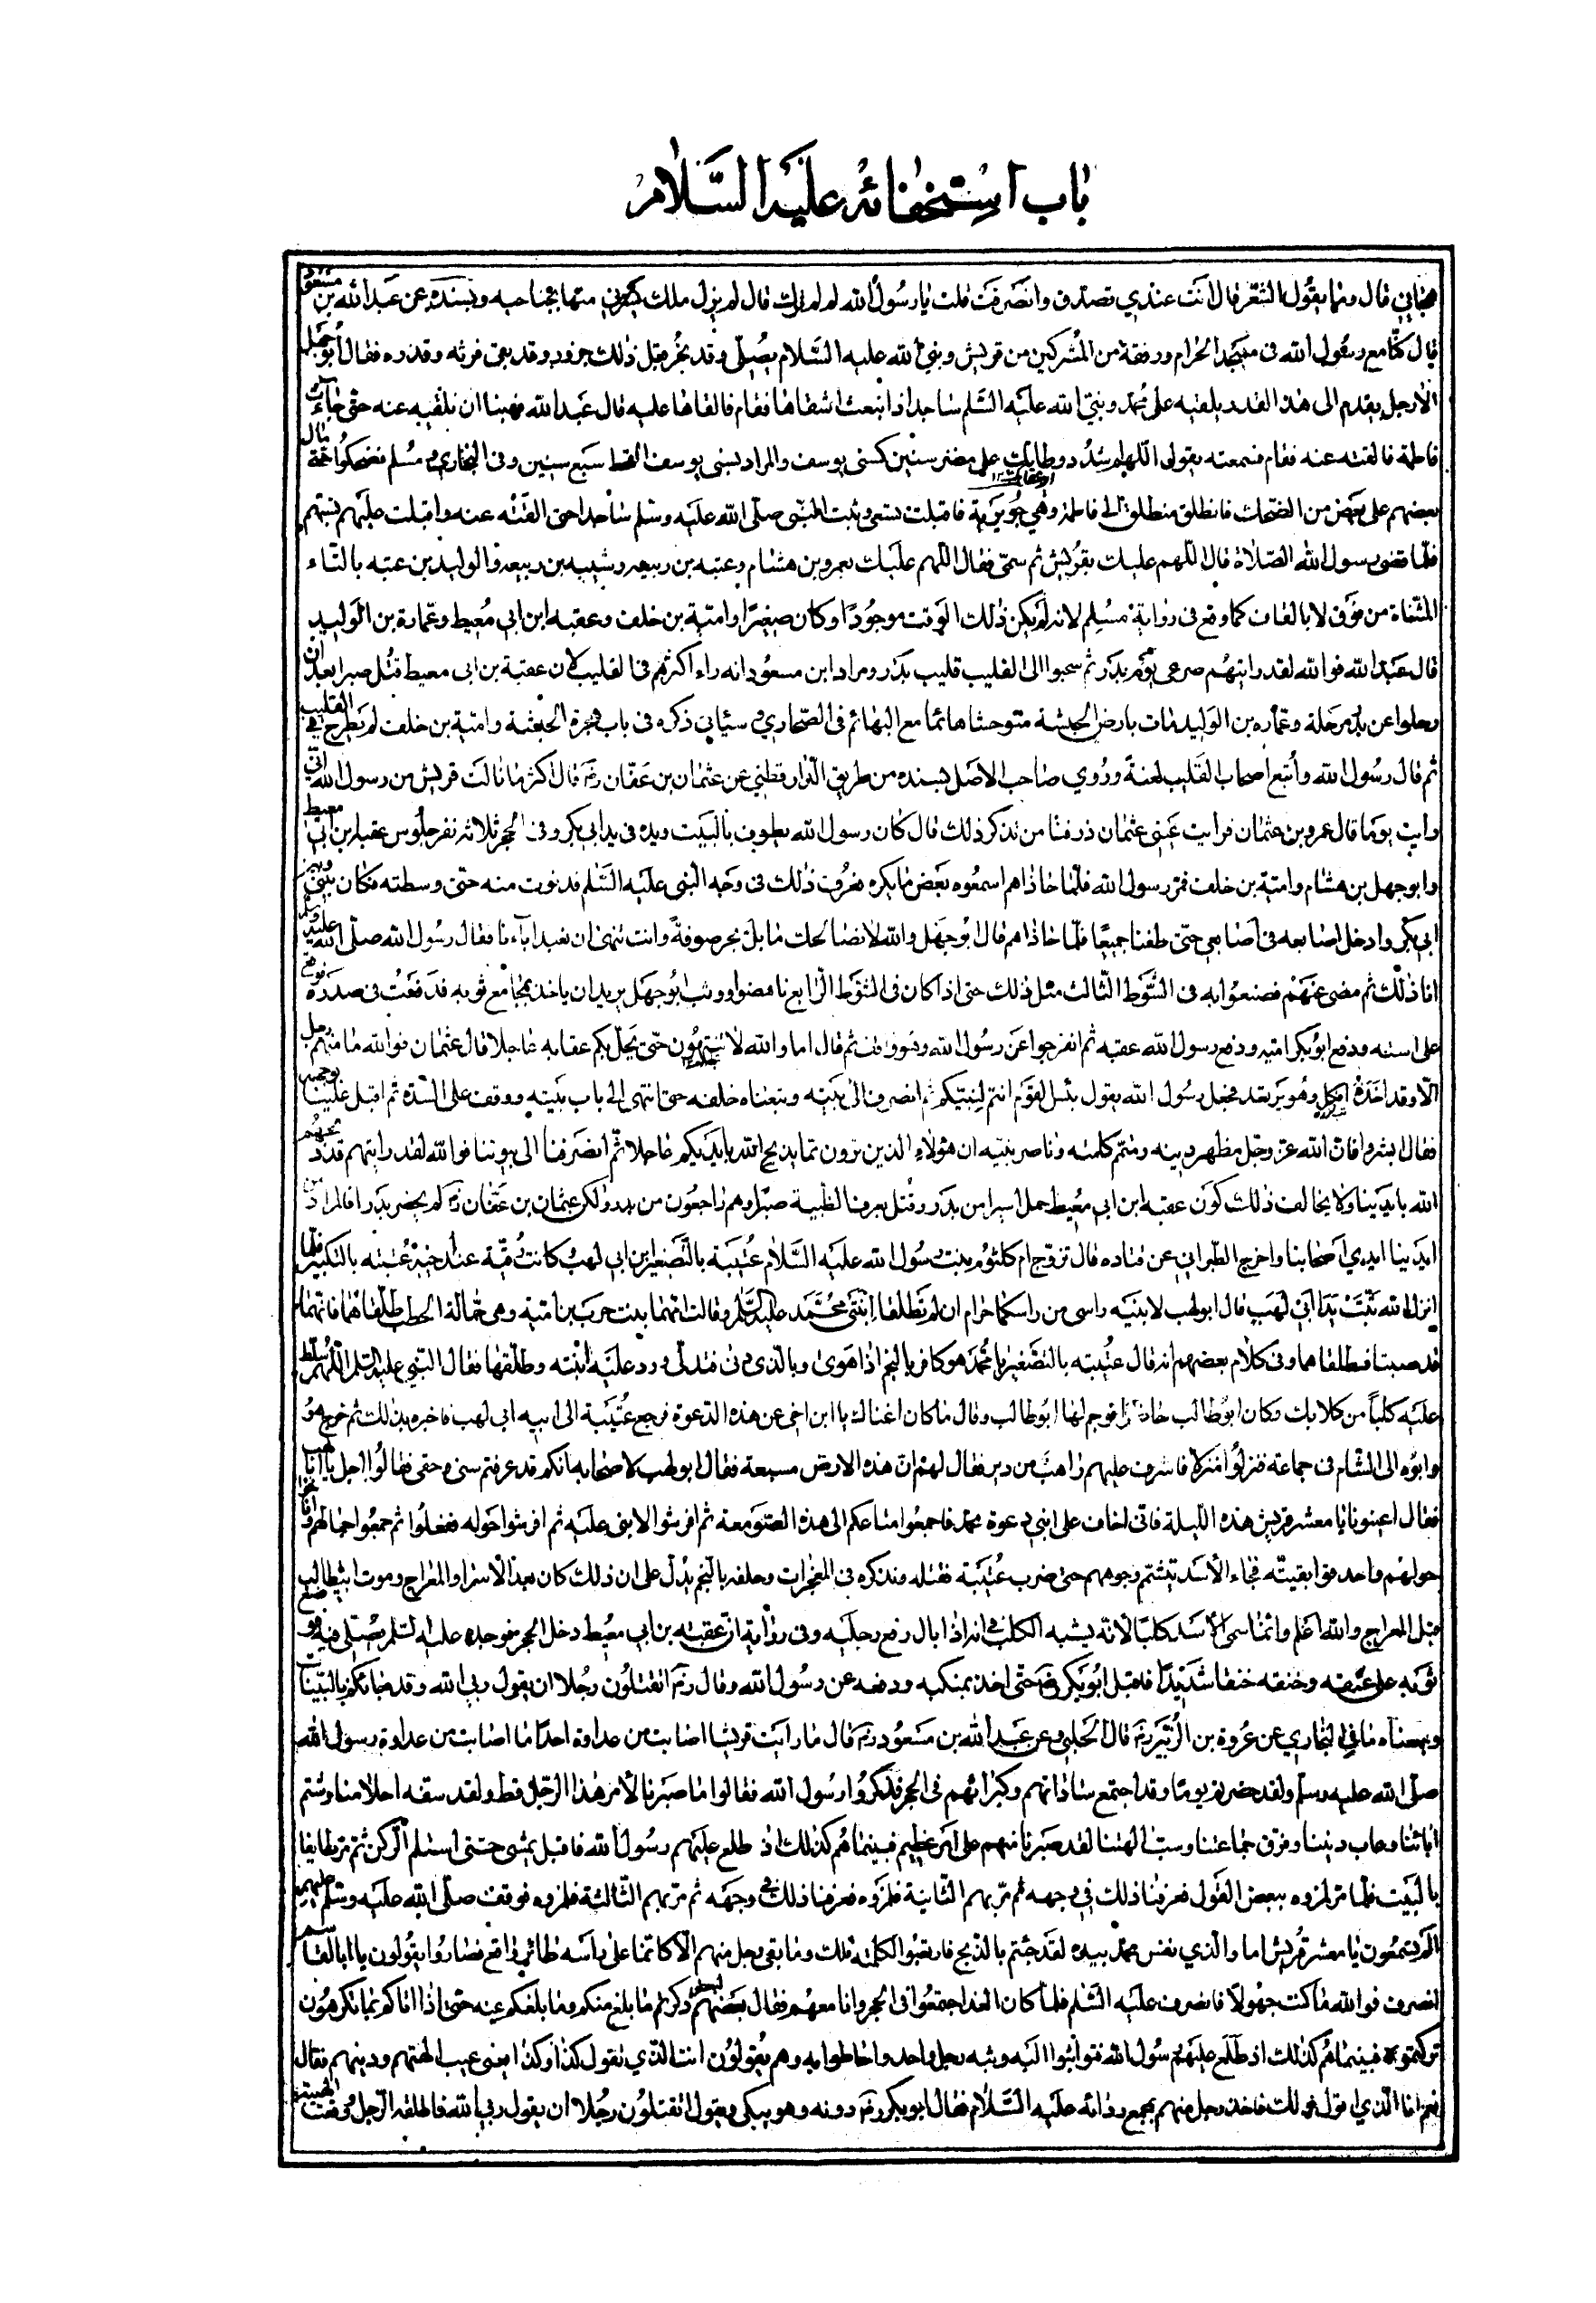 باب استخفائه عليه السلام
هجاني قال وما يقول الشعر قال انت عندي تصدق وانصرفت قلت يا رسول الله لم لم ترك قال لم يزل ملك يسترني منها بجناحيه وبسنده عن عبد الله بن مسعود
قال كنا مع رسول الله في مسجد الحرام ورفقة من المشركين من قريش ونبي الله عليه السلام يصلي وقد نحر قبل ذلك جزور وقد بقي فرثه وقذره فقال ابو جهل
الا رجل يقوم الى هذا القذر يلقيه على محمد ونبي الله عليه السلم ساجد اذ انبعث اشقاها فقام فالقاها عليه قال عبد الله فهبنا ان نلقيه عنه حتى جاءت
فاطمة فالقته عنه فقام فسمعته يقول اللهم شدد وطاتك على مضر سنين كسني يوسف والمراد بسني يوسف القحط سبع سنين وفي البخاري و مسلم فضحكوا حتى مال
بعضهم على بعض من الضحك فانطلق منطلق الى فاطمة وهي جويرية فاقبلت تسعى وثبت النبي صلى الله عليه وسلم ساجدا حتى القته عنه واقبلت عليهم تسبهم
فلما قضى رسول الله الصلاة قال اللهم عليك بقريش ثم سمى فقال اللهم عليك بعمرو بن هشام وعتبه بن ربيعه وشيبه بن ربيعه والوليد بن عتبه بالتاء
المثناة من فوق لا بالقاف كما وقع في رواية مسلم لانه لم يكن ذلك الوقت موجودا وكان صغيرا وامية بن خلف وعقبه ابن ابي معيط وعمارة بن الوليد
قال عبد الله فوالله لقد رايتهم صرعى يوم بدر ثم سحبوا الى القليب قليب بدر ومراد ابن مسعود انه راء اكثرهم في القليب لان عقبة بن ابي معيط قتل صبرا بعد ان
رحلوا عن بدر مرحلة وعماره بن الوليد مات بارض الحبشة متوحشا هائما مع البهائم في الصحاري و سياتي ذكره في باب هجرة الحبشة وامية بن خلف لم يطرح في القليب
ثم قال رسول الله وأتبع اصحاب القليب لعنة وروي صاحب الاصل بسنده من طريق الدارقطني عن عثمان بن عفان رضه قال اكثر ما نالت قريش من رسول الله اني
رايت يوما قال عمرو بن عثمان فرايت عيني عثمان ذرفتا من تذكر ذلك قال كان رسول الله يطوف بالبيت ويده في يد ابي بكر وفي الحجر ثلاثه نفر جلوس عقبه بن ابي معيط
وابو جهل بن هشام وامية بن خلف فمر رسول الله فلما حاذاهم اسمعوه بعض ما يكره فعرفت ذلك في وجه النبي عليه السلم فدنوت منه حتى وسطته فكان بيني وبين
ابي بكر وادخل اصابعه في اصابعي حتى طفنا جميعا فلما حاذاهم قال ابو جهل والله لا نصالحك ما بل بحر صوفة وانت تنهى ان نعبد اباءنا فقال رسول الله صلى الله عليه وسلم
انا ذلك ثم مضى عنهم فصنعوا به في الشوط الثالث مثل ذلك حتى اذا كان في الشوط الرابع ناهضوا ووثب ابو جهل يريد ان ياخذ بمجامع ثوبه فدفعت في صدره فوقع
على استه ودفع ابو بكر اميه ودفع رسول الله عقبه ثم انفرجوا عن رسول الله وهو واقف ثم قال اما والله لا تنتهون حتى يحل بكم عقابه عاجلا قال عثمان فوالله ما منهم رجل
الا وقد اخذه افكل وهو يرتعد فجعل رسول الله يقول بئس القوم انتم لنبيكم ثم انصرف الى بيته وتبعناه خلفه حتى انتهى الى باب بيته ووقف على السدة ثم اقبل علينا بوجهه
فقال ابشروا فان الله عز وجل مظهر دينه ومتمم كلمته وناصر نبيه ان هؤلاء الذين ترون مما يذبح الله بايديكم عاجلا ثم انصرفنا الى بيوتنا فوالله لقد رايتهم قد ذبحهم
الله بايدينا ولا يخالف ذلك كون عقبه ابن ابي معيط حمل اسيرا من بدر وقتل بعرق الظبية صبرا وهم راجعون من بدر ولكن عثمان بن عفان رضه لم يحضر بدرا فالمراد من
ايدينا ايدي اصحابنا واخرج الطبراني عن قتاده قال تزوج ام كلثوم بنت رسول الله عليه السلام عتيبة بالتصغير ابن ابي لهب كانت رقية عند اخيه عتبته بالتكبير فلما
انزل الله تبت يدا ابي لهب قال ابو لهب لابنيه راسي من راسكما حرام ان لم تطلقا ابنتي محمد عليه السلم وقالت امهما بنت حرب بن امية وهي حمالة الحطب طلقاهما فانهما
قد صبتا فطلقاهما وفي كلام بعضهم انه قال عتيبته بالتصغير يا محمد هو كافر بالنجم اذا هوى وبالذي دنى فتدلى ورد عليه ابنته وطلقها فقال النبي عليه السلم اللهم سلط
عليه كلبا من كلابك وكان ابو طالب حاضرا فوجم لها ابو طالب وقال ما كان اغناك يا ابن اخي عن هذه الدعوة فرجع عتيبة الى ابيه ابي لهب فاخبره بذلك ثم خرج هو
وابوه الى الشام في جماعة فنزلوا منزلا فاشرف عليهم راهب من دير فقال لهم ان هذه الارض مسبعة فقال ابو لهب لاصحابه انكم قد عرفتم سني وحقي فقالوا اجل يا ابا لهب
فقال اعينونا يا معشر قريش هذه الليلة فاني اخاف على ابني دعوة محمد فاجمعوا متاعكم الى هذه الصومعة ثم افرشوا لابني عليه ثم افرشوا حوله ففعلوا ثم جمعوا جمالهم واناخوا
حولهم واحدقوا بعتيبه فجاء الاسد يتشمم وجوههم حتى ضرب عتيبة فقتله ونذكره في المعجزات وحلفه بالنجم يدل على ان ذلك كان بعد الاسراء والمعراج وموت ابي طالب
قبل المعراج والله اعلم وانما سمى الاسد كلبا لانه يشبه الكلب في انه اذا بال رفع رجليه وفي رواية ان عقبته بن ابي معيط دخل الحجر فوجده عليه السلم يصلي فيه فوضع
ثوبه على عنقه وخنقه خنقا شديدا فاقبل ابو بكر رضه حتى اخذ بمنكبه ودفعه عن رسول الله وقال رضه اتقتلون رجلا ان يقول ربي الله وقد جاءكم بالبينات
وبمعناه ما في البخاري عن عروة بن الزبير رضه قال الحلبي وعن عبد الله بن مسعود رضه قال ما رايت قريشا اصابت من عداوة احد ما اصابت من عداوة رسول الله
صلى الله عليه وسلم ولقد حضرته يوما وقد اجتمع ساداتهم وكبرائهم في الحجر فذكروا رسول الله فقالوا ما صبرنا لأمر هذا الرجل قط ولقد سفه احلامنا وشتم
اباءنا وعاب ديننا وفرق جماعتنا وسب الهتنا لقد صبرنا منهم على امر عظيم فبينما هم كذلك اذ طلع عليهم رسول الله فاقبل يمشي حتى استلم الركن ثم مر طايفا
بالبيت فلما مر لمزوه ببعض القول فعرفنا ذلك في وجهه ثم مر بهم الثانية فلمزوه فعرفنا ذلك في وجهه ثم مر بهم الثالثة فلمزوه فوقف صلى الله عليه وسلم عليهم
الم تسمعون يا معشر قريش اما والذي نفس محمد بيده لقد جئتم بالذبح فارتقبوا لكلمته تلك وما بقي رجل منهم الا كانما على راسه طائر واقع فصاروا يقولون يا ابا القاسم
انصرف فوالله ما كنت جهولا فانصرف عليه السلم فلما كان الغد اجتمعوا في الحجر وانا معهم فقال بعضهم لبعض ذكرتم ما بلغ منكم وما بلغكم عنه حتى اذا اتاكم بما تكرهون
تركتموه فبينما هم كذلك اذ طلع عليهم رسول الله فتواثبوا اليه وثبه رجل واحد واحاطوا به وهم يقولون انت الذي تقول كذا وكذا يعني عيب الهتهم ودينهم فقال
نعم انا الذي اقول ذلك فاخذ رجل منهم بمجمع ردائه عليه السلام فقال ابو بكر رضه دونه وهو يبكي ويقول اتقتلون رجلا ان يقول ربي الله فاطلقه الرجل